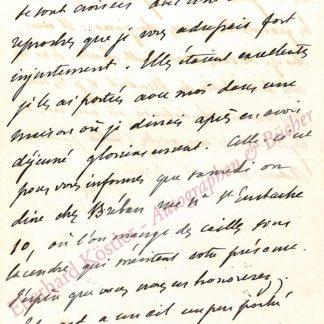 se sont croisées avec
reproches que je vous adressais fort
injustement. Elles étaient excellentes
je les ai portées avec moi dans une
maison où je dinais après en avoir
déjeuné glorieusement. Celle-ci est
pour vous informer que samedi on
dine chez Bréban rue Nve St Eustache
10, où l'on mange des cailles sous
la cendre qui méritent votre présence.
J'espère que vous nous en honorerez.
a un œil un peu poché
Eberhard Köstler Autographen & Bücher